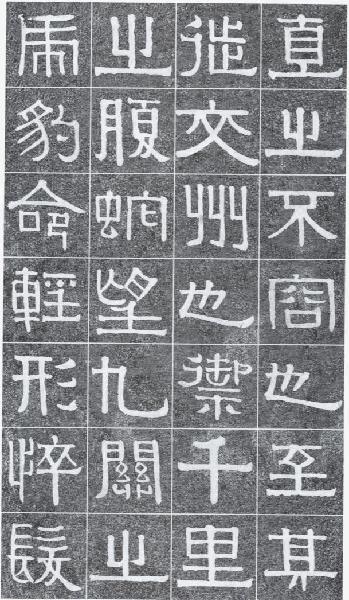 直之不容也至其
徙交州也禦千里
之腹蛇望九關之
虎豹命輕形悴髮